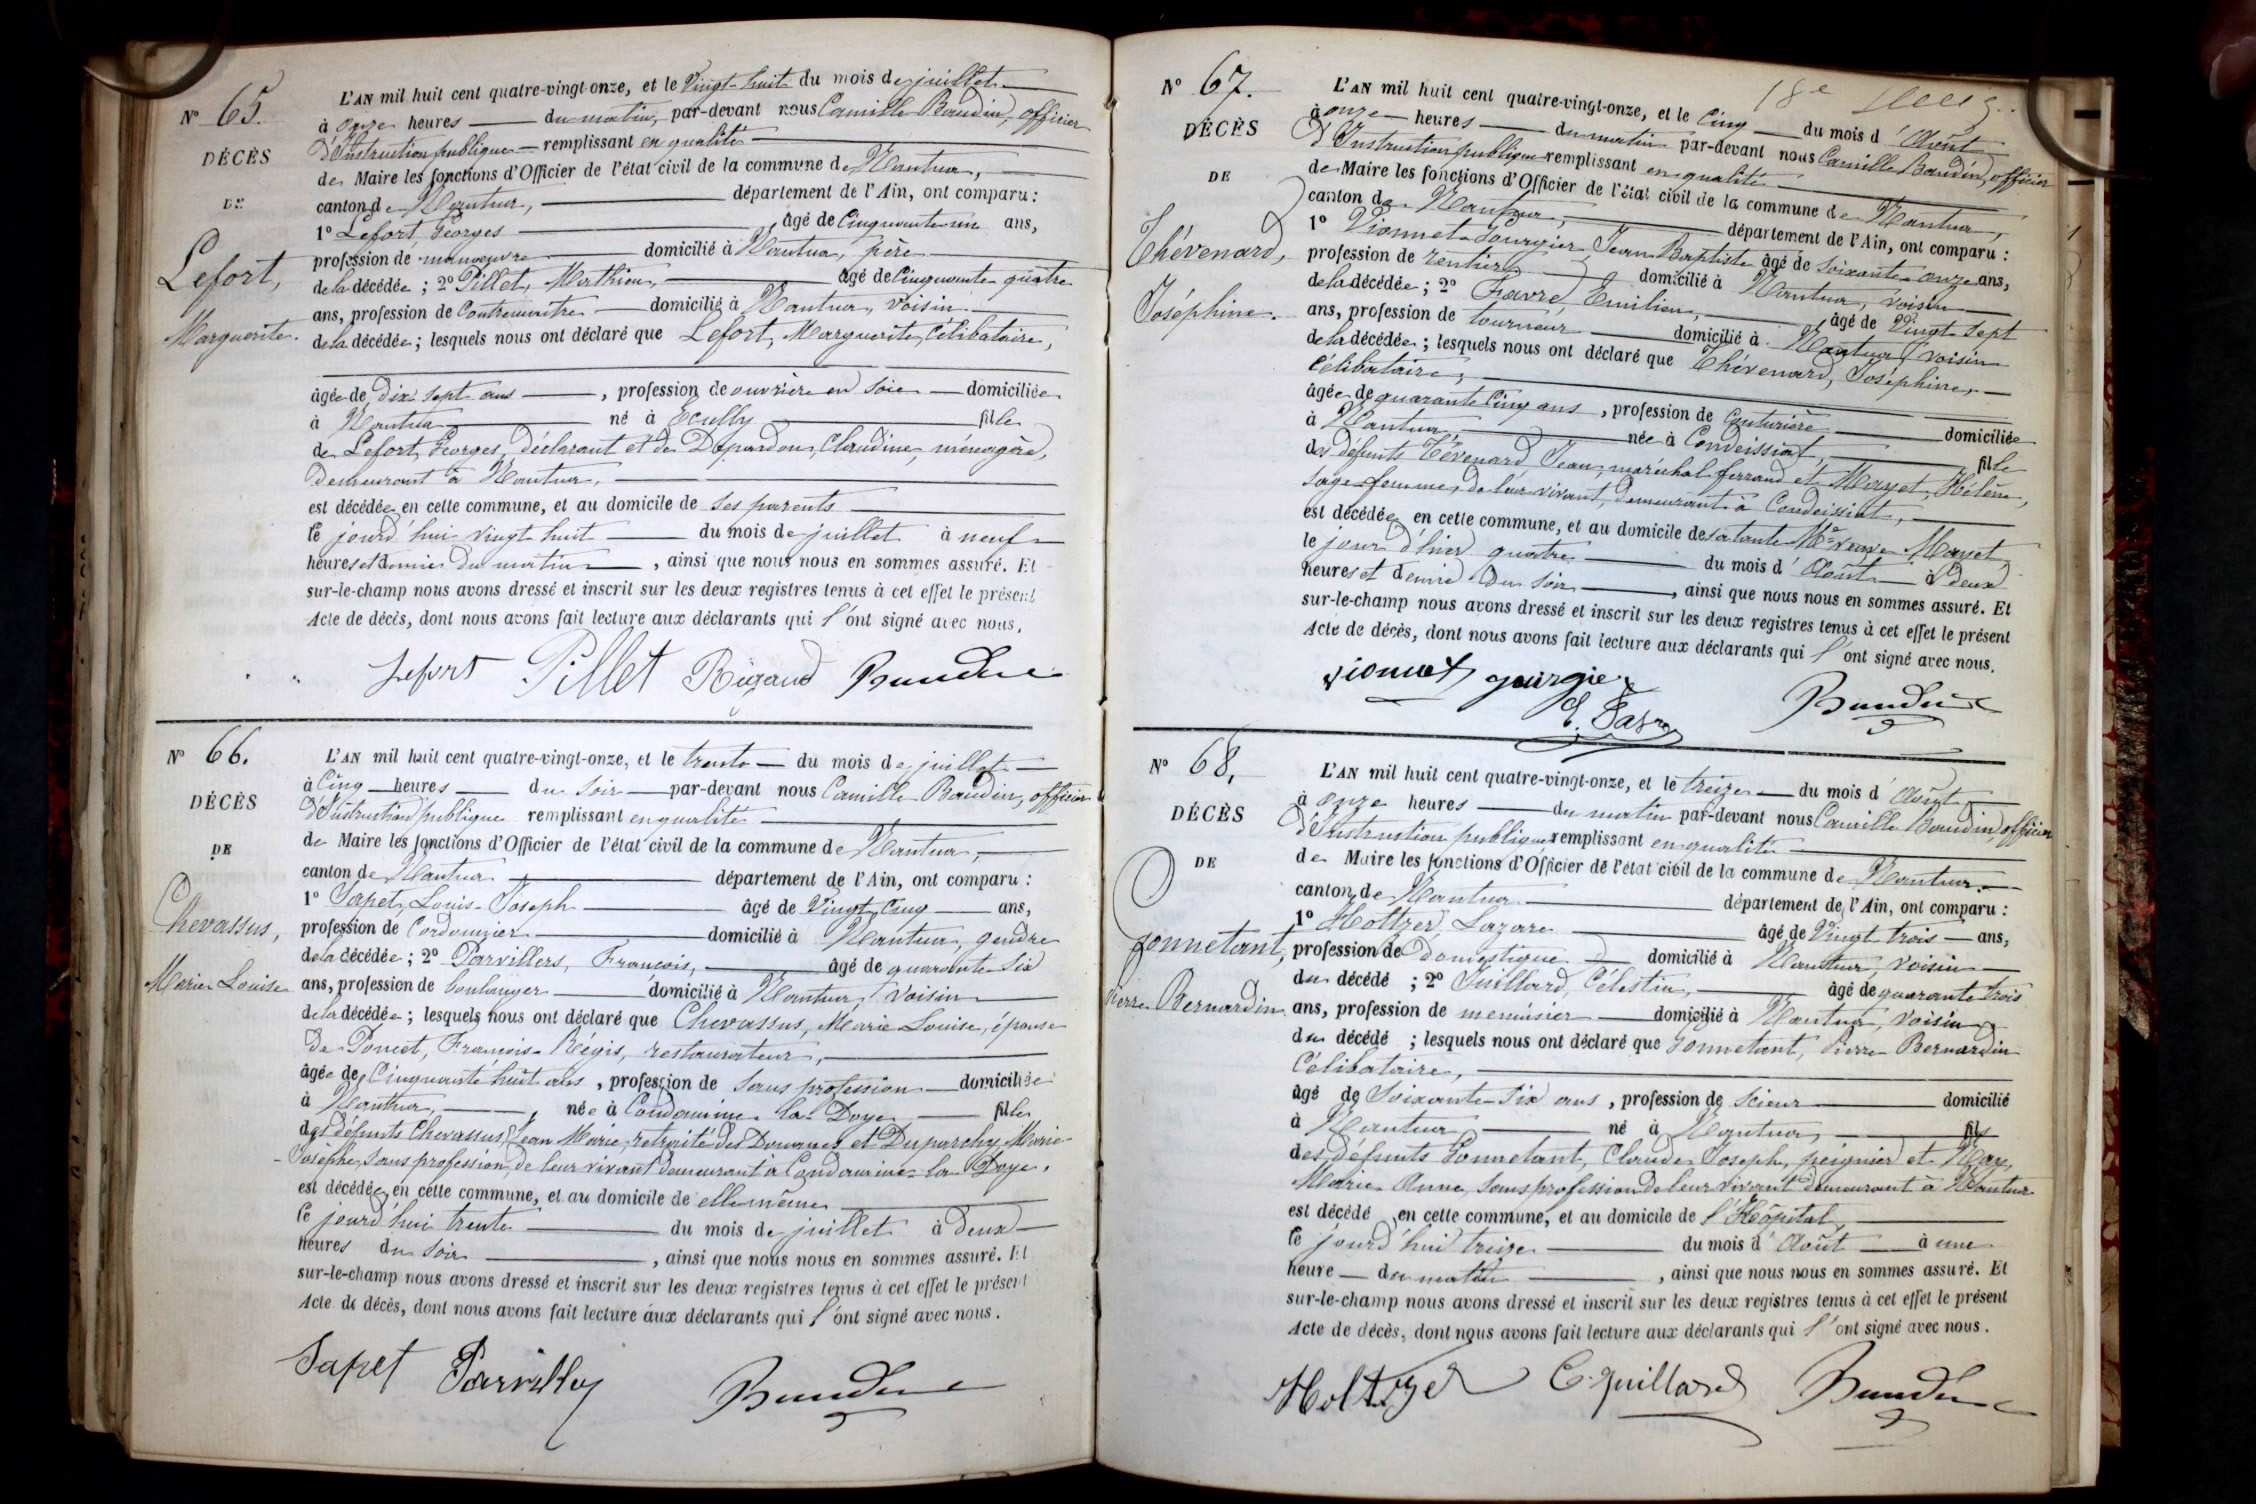 N° 65.
DÉCÈS
DE
Lefort,
Marguerite.
L'AN mil huit cent quatre-vingt-onze, et le Vingt-huit du mois de juillet
à onze heures du matin, par-devant nous Camille Baudin, officier
d'Instruction publique remplissant en qualité
de Maire les fonctions d'Officier de l'état civil de la commune de Nantua,
canton de Nantua, département de l'Ain, ont comparu :
1° Lefort, Georges, âgé de Cinquante un ans,
profession de manoeuvre domicilié à Nantua, père
de la décédée ; 2° Pillet, Mathieu, âgé de Cinquante quatre
ans, profession de Contremaitre domicilié à Nantua, voisin
de la décédée ; lesquels nous ont déclaré que Lefort, Marguerite, Célibataire,
âgée de dix sept ans, profession de ouvrière en soie domiciliée
à Nantua né à Ecully fille
de Lefort, Georges, déclarant et de Depardon, Claudine, ménagère,
demeurant à Nantua,
est décédée en cette commune, et au domicile de ses parents
le jourd'hui vingt huit du mois de juillet à neuf
heures et demie du matin, ainsi que nous nous en sommes assuré. Et
sur-le-champ nous avons dressé et inscrit sur les deux registres tenus à cet effet le présent
Acte de décès, dont nous avons fait lecture aux déclarants qui l'ont signé avec nous.
Lefort Pillet Rigaud Baudin
N° 66.
DÉCÈS
DE
Chevassus,
Marie Louise
L'AN mil huit cent quatre-vingt-onze, et le trente du mois de juillet
à Cinq heures du soir par-devant nous Camille Baudin, officier
d'Instruction publique remplissant en qualité
de Maire les fonctions d'Officier de l'état civil de la commune de Nantua,
canton de Nantua département de l'Ain, ont comparu :
1° Sapet, Louis-Joseph âgé de Vingt Cinq ans,
profession de Cordonnier domicilié à Nantua, gendre
de la décédée ; 2° Parvillers, François, âgé de quarante six
ans, profession de boulanger domicilié à Nantua, voisin
de la décédée ; lesquels nous ont déclaré que Chevassus, Marie Louise, épouse
de Poncet, François-Régis, restaurateur,
âgée de Cinquante huit ans, profession de sans profession domiciliée
à Nantua, née à Condamine-la-Doye fille
des défunts Chevassus, Jean Marie, retraité des Douanes et Duparchy, Marie
Josephe, sans profession, de leur vivant demeurant à Condamine-la-Doye,
est décédée en cette commune, et au domicile de elle même
le jourd'hui trente du mois de juillet à deux
heures du soir, ainsi que nous nous en sommes assuré. Et
sur-le-champ nous avons dressé et inscrit sur les deux registres tenus à cet effet le présent
Acte de décès, dont nous avons fait lecture aux déclarants qui l'ont signé avec nous.
Sapet Parvillers Baudin
18e
N° 67.
DÉCÈS
DE
Thévenard,
Joséphine.
L'AN mil huit cent quatre-vingt-onze, et le Cinq du mois d'Août
à onze heures du matin par-devant nous Camille Baudin, officier
d'Instruction publique remplissant en qualité
de Maire les fonctions d'Officier de l'état civil de la commune de Nantua,
canton de Nantua, département de l'Ain, ont comparu :
1° Vionnet-Gourgier, Jean Baptiste âgé de soixante-onze ans,
profession de rentier domicilié à Nantua, voisin
de la décédée ; 2° Favre, Emilien, âgé de Vingt sept
ans, profession de tourneur domicilié à Nantua, voisin
de la décédée ; lesquels nous ont déclaré que Thévenard, Joséphine,
Célibataire,
âgée de quarante Cinq ans, profession de Couturière domiciliée
à Nantua, née à Condeissiat, fille
des défunts Tévenard Jean, maréchal ferrand et Mayet, Hélène,
sage-femme, de leur vivant, demeurant à Condeissiat,
est décédée en cette commune, et au domicile de sa tante Me veuve Mayet
le jour d'hier quatre du mois d'Août à deux
heures et demie du soir, ainsi que nous nous en sommes assuré. Et
sur-le-champ nous avons dressé et inscrit sur les deux registres tenus à cet effet le présent
Acte de décès, dont nous avons fait lecture aux déclarants qui l'ont signé avec nous.
Vionnet gourgier
E. Favre Baudin
N° 68.
DÉCÈS
DE
Gonnetant,
Pierre Bernardin
L'AN mil huit cent quatre-vingt-onze, et le treize du mois d'Août
à onze heures du matin par-devant nous Camille Baudin, officier
d'Instruction publique remplissant en qualité
de Maire les fonctions d'Officier de l'état civil de la commune de Nantua
canton de Nantua département de l'Ain, ont comparu :
1° Holtzer, Lazare âgé de Vingt trois ans,
profession de Domestique domicilié à Nantua, voisin
du décédé ; 2° Juillard, Célestin, âgé de quarante trois
ans, profession de menuisier domicilié à Nantua, voisin
du décédé ; lesquels nous ont déclaré que Gonnetant, Pierre Bernardin
Célibataire,
âgé de Soixante-Six ans, profession de scieur domicilié
à Nantua né à Nantua, fils
des défunts Gonnetant, Claude Joseph, peignier et May,
Marie Anne, sans profession de leur vivant demeurant à Nantua
est décédé en cette commune, et au domicile de l'Hôpital,
le jourd'hui treize du mois d'Août à une
heure du matin, ainsi que nous nous en sommes assuré. Et
sur-le-champ nous avons dressé et inscrit sur les deux registres tenus à cet effet le présent
Acte de décès, dont nous avons fait lecture aux déclarants qui l'ont signé avec nous.
Holtzer C. Juillard Baudin